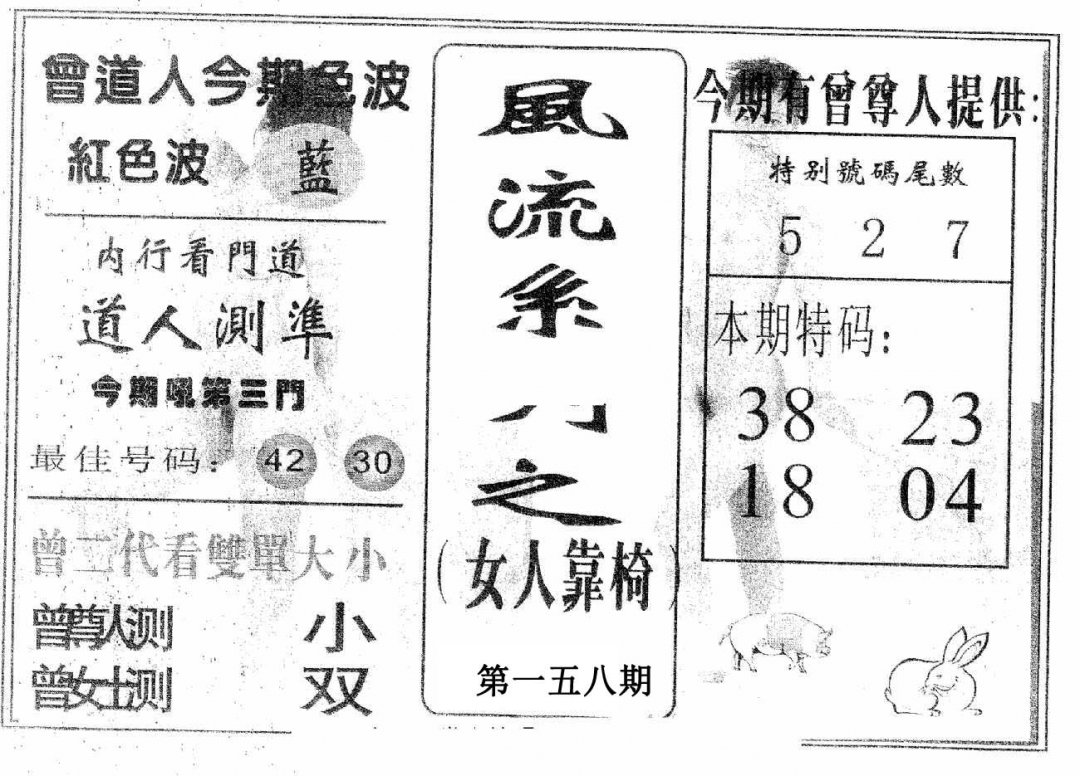 曾道人今期色波
紅色波 藍
内行看門道
道人測準
今期吼第三門
最佳号码: 42 30
曾二代看雙單大小
曾尊人测 小
曾女士测 双
風流系列之
(女人靠椅)
第一五八期
今期有曾尊人提供:
特别號碼尾數
5 2 7
本期特码:
38 23
18 04